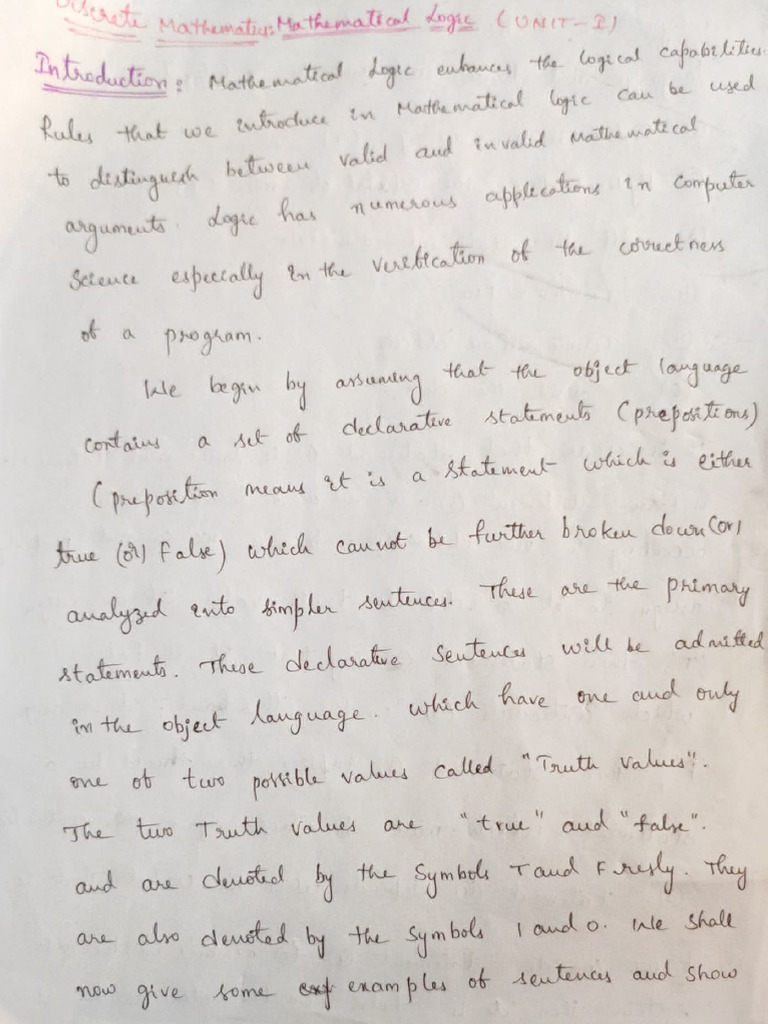 Discrete Mathematics: Mathematical Logic (UNIT-I)
Introduction: Mathematical Logic enhances the logical capabilities.
Rules that we introduce in Mathematical logic can be used
to distinguish between valid and invalid Mathematical
arguments. Logic has numerous applications in Computer
Science especially in the verification of the correctness
of a program.
We begin by assuming that the object language
contains a set of declarative statements (prepositions)
(preposition means it is a statement which is either
true (or) false) which cannot be further broken down (or)
analyzed into simpler sentences. These are the primary
statements. These declarative sentences will be admitted
in the object language. which have one and only
one of two possible values called "Truth values".
The two Truth values are "true" and "false".
and are denoted by the Symbols T and F resly. They
are also denoted by the symbols 1 and 0. We shall
now give some examples of sentences and show